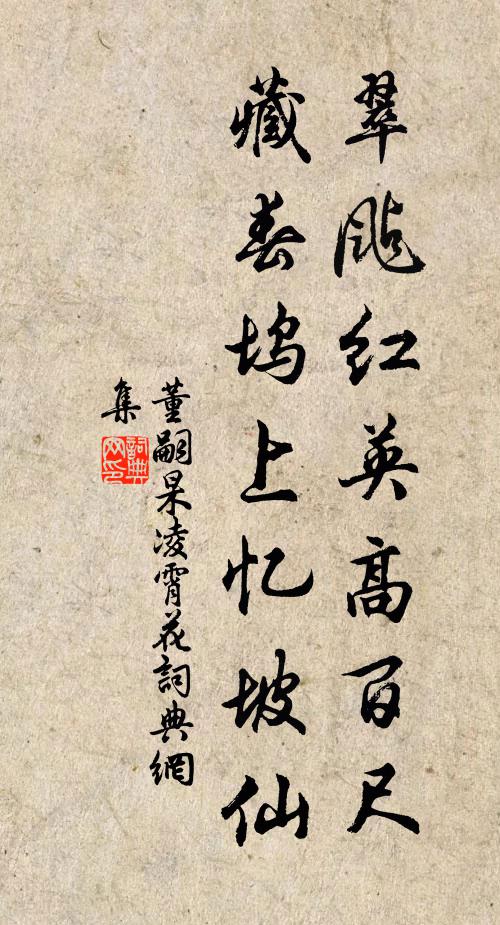 翠飐红英高百尺
藏春坞上忆坡仙
董嗣杲凌霄花詞典網
集
詞典
网印